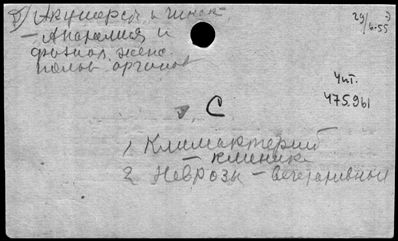 5) Акушерст. и гинек.
- Анатомия и
физиол. женс.
полов. органов
29/4-55
Чит.
475.961
C
1 Климактерий
- клиника
2 Неврозы - вегетативный